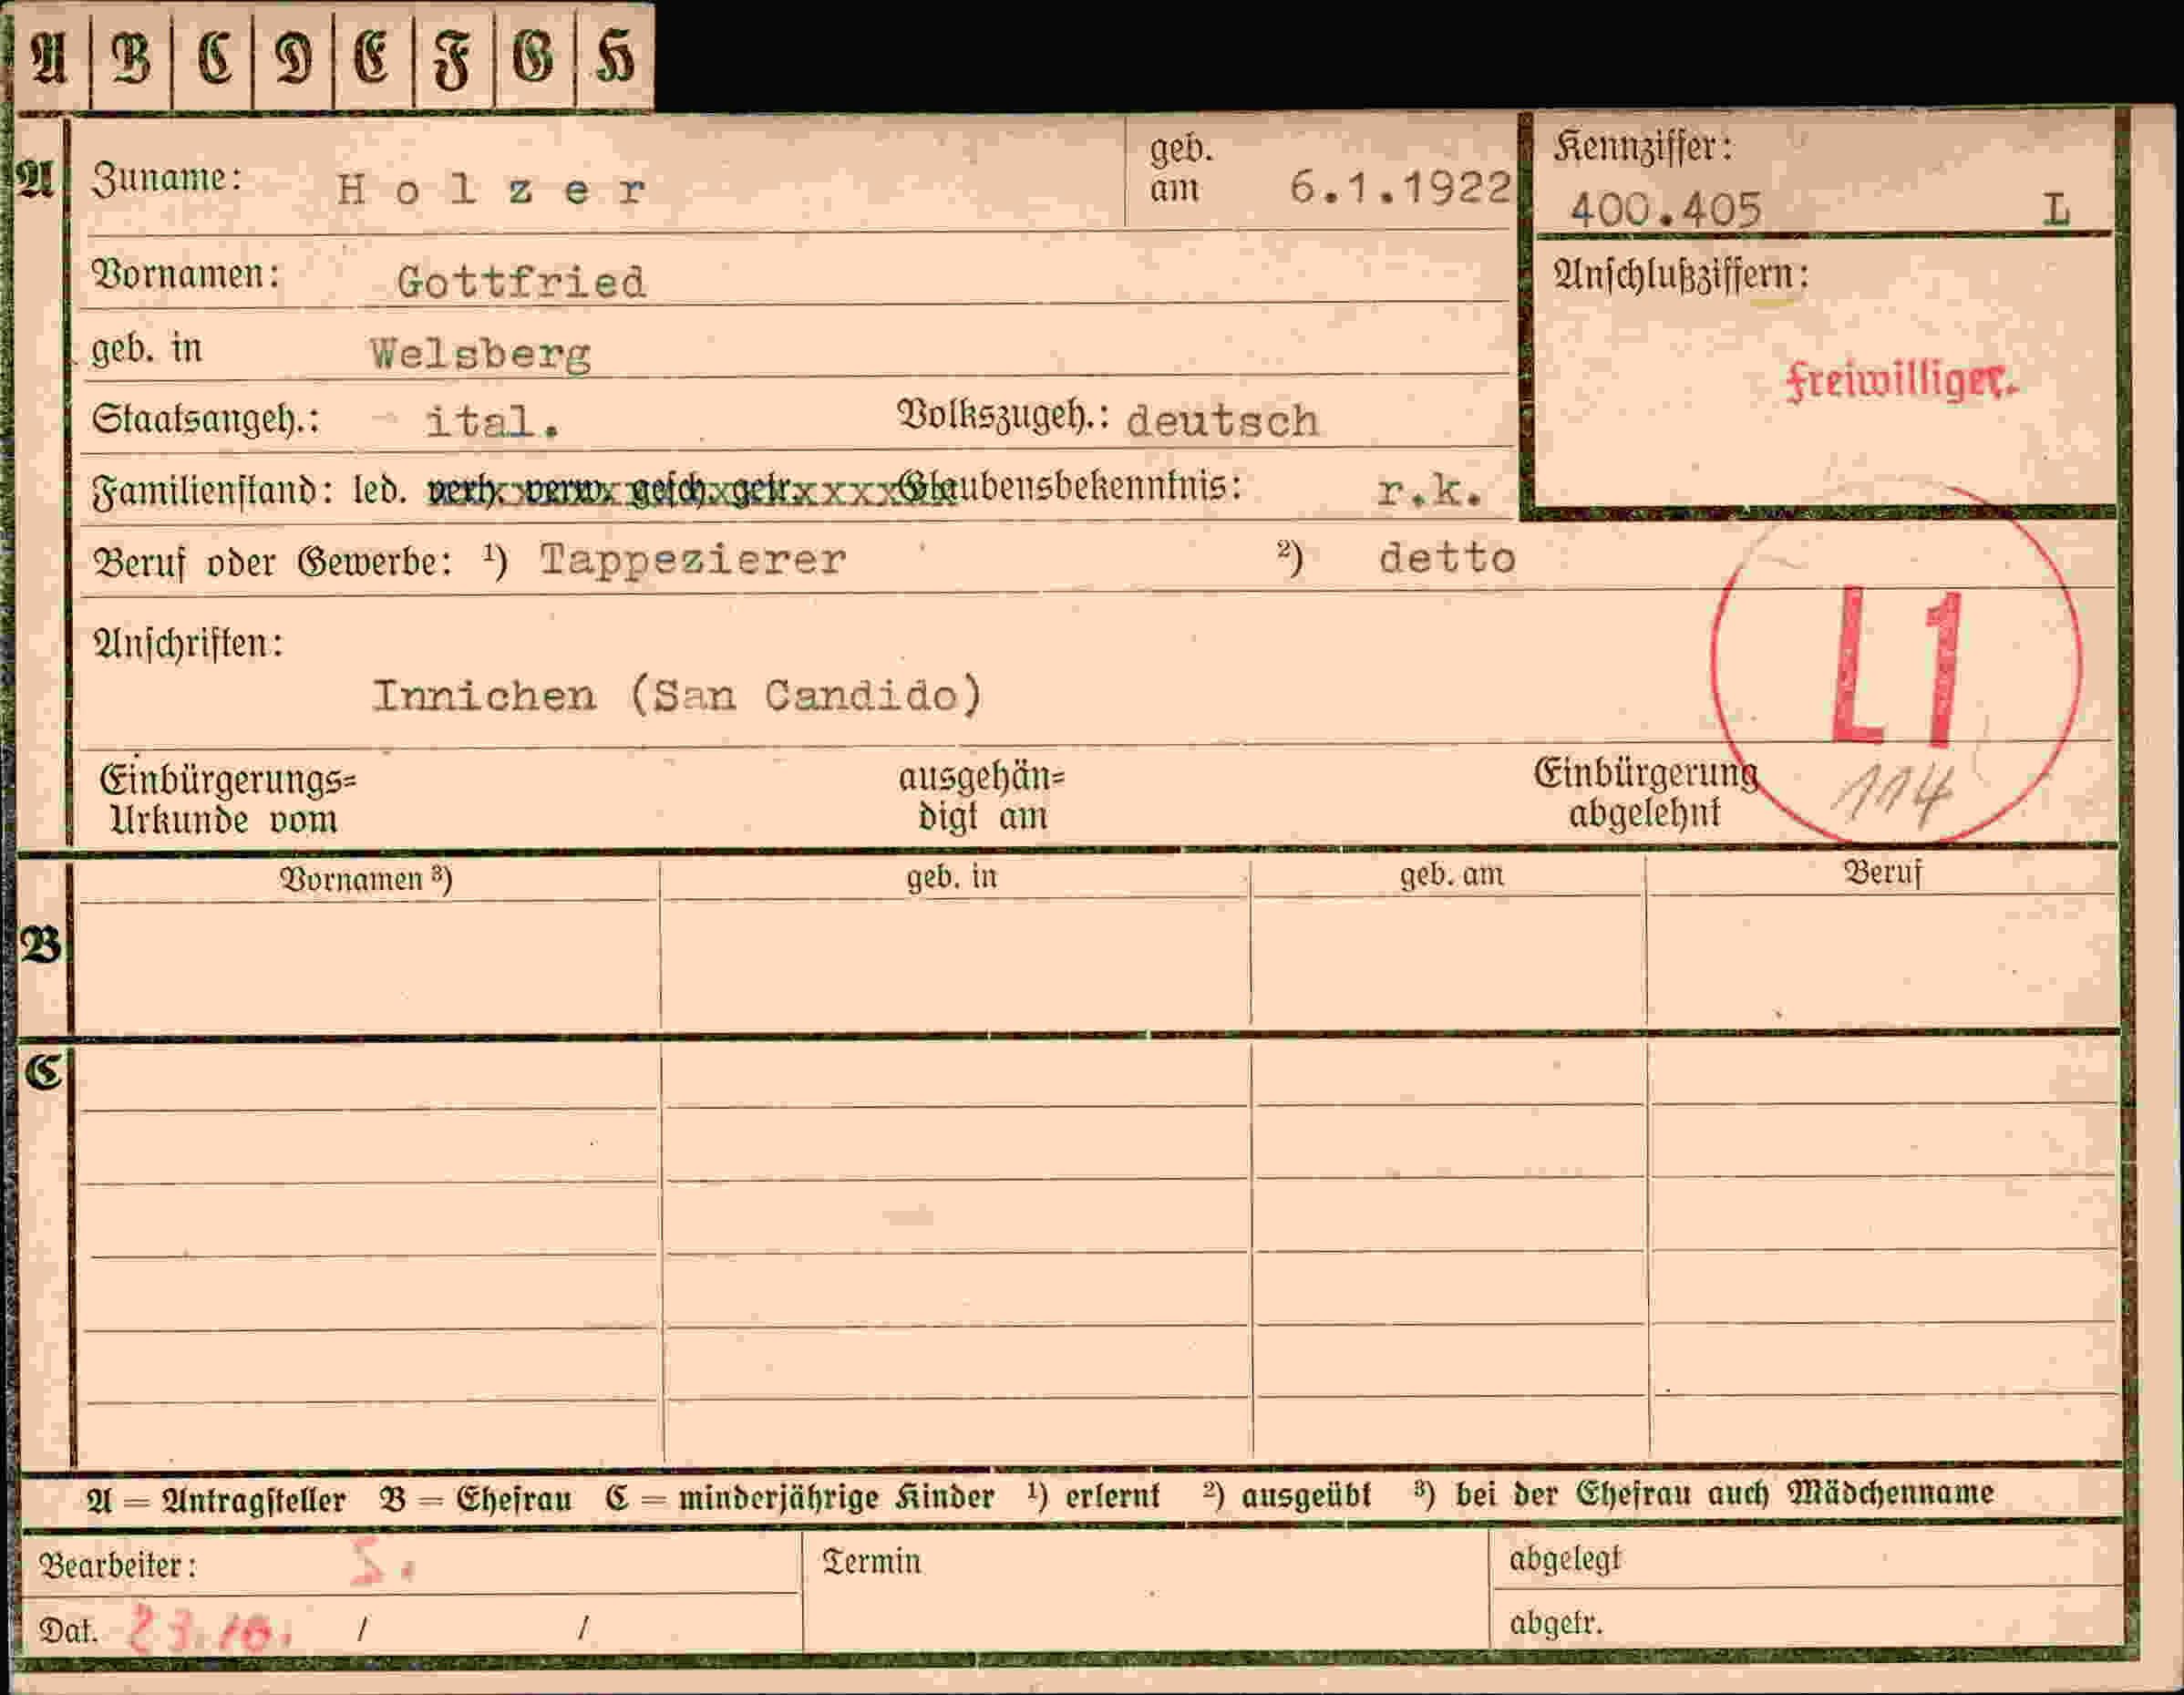 A B C D E F G H
A Zuname: Holzer geb. am 6.1.1922 Kennziffer: 400.405 L
Vornamen: Gottfried Anschlußziffern:
geb. in Welsberg freiwilliger.
Staatsangeh.: ital. Volkszugeh.: deutsch
Familienstand: led. verh. verw. gesch. getr. xxxx Glaubensbekenntnis: r.k.
Beruf oder Gewerbe: ¹) Tappezierer ²) detto
Anschriften: L1
Innichen (San Candido)
Einbürgerungs= ausgehän= Einbürgerung 114
Urkunde vom digt am abgelehnt
Vornamen ³) geb. in geb. am Beruf
B
C
A = Antragsteller B = Ehefrau C = minderjährige Kinder ¹) erlernt ²) ausgeübt ³) bei der Ehefrau auch Mädchenname
Bearbeiter: Termin abgelegt
Dat. 23.10. / / abgetr.